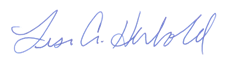 Lisa A. Herbold